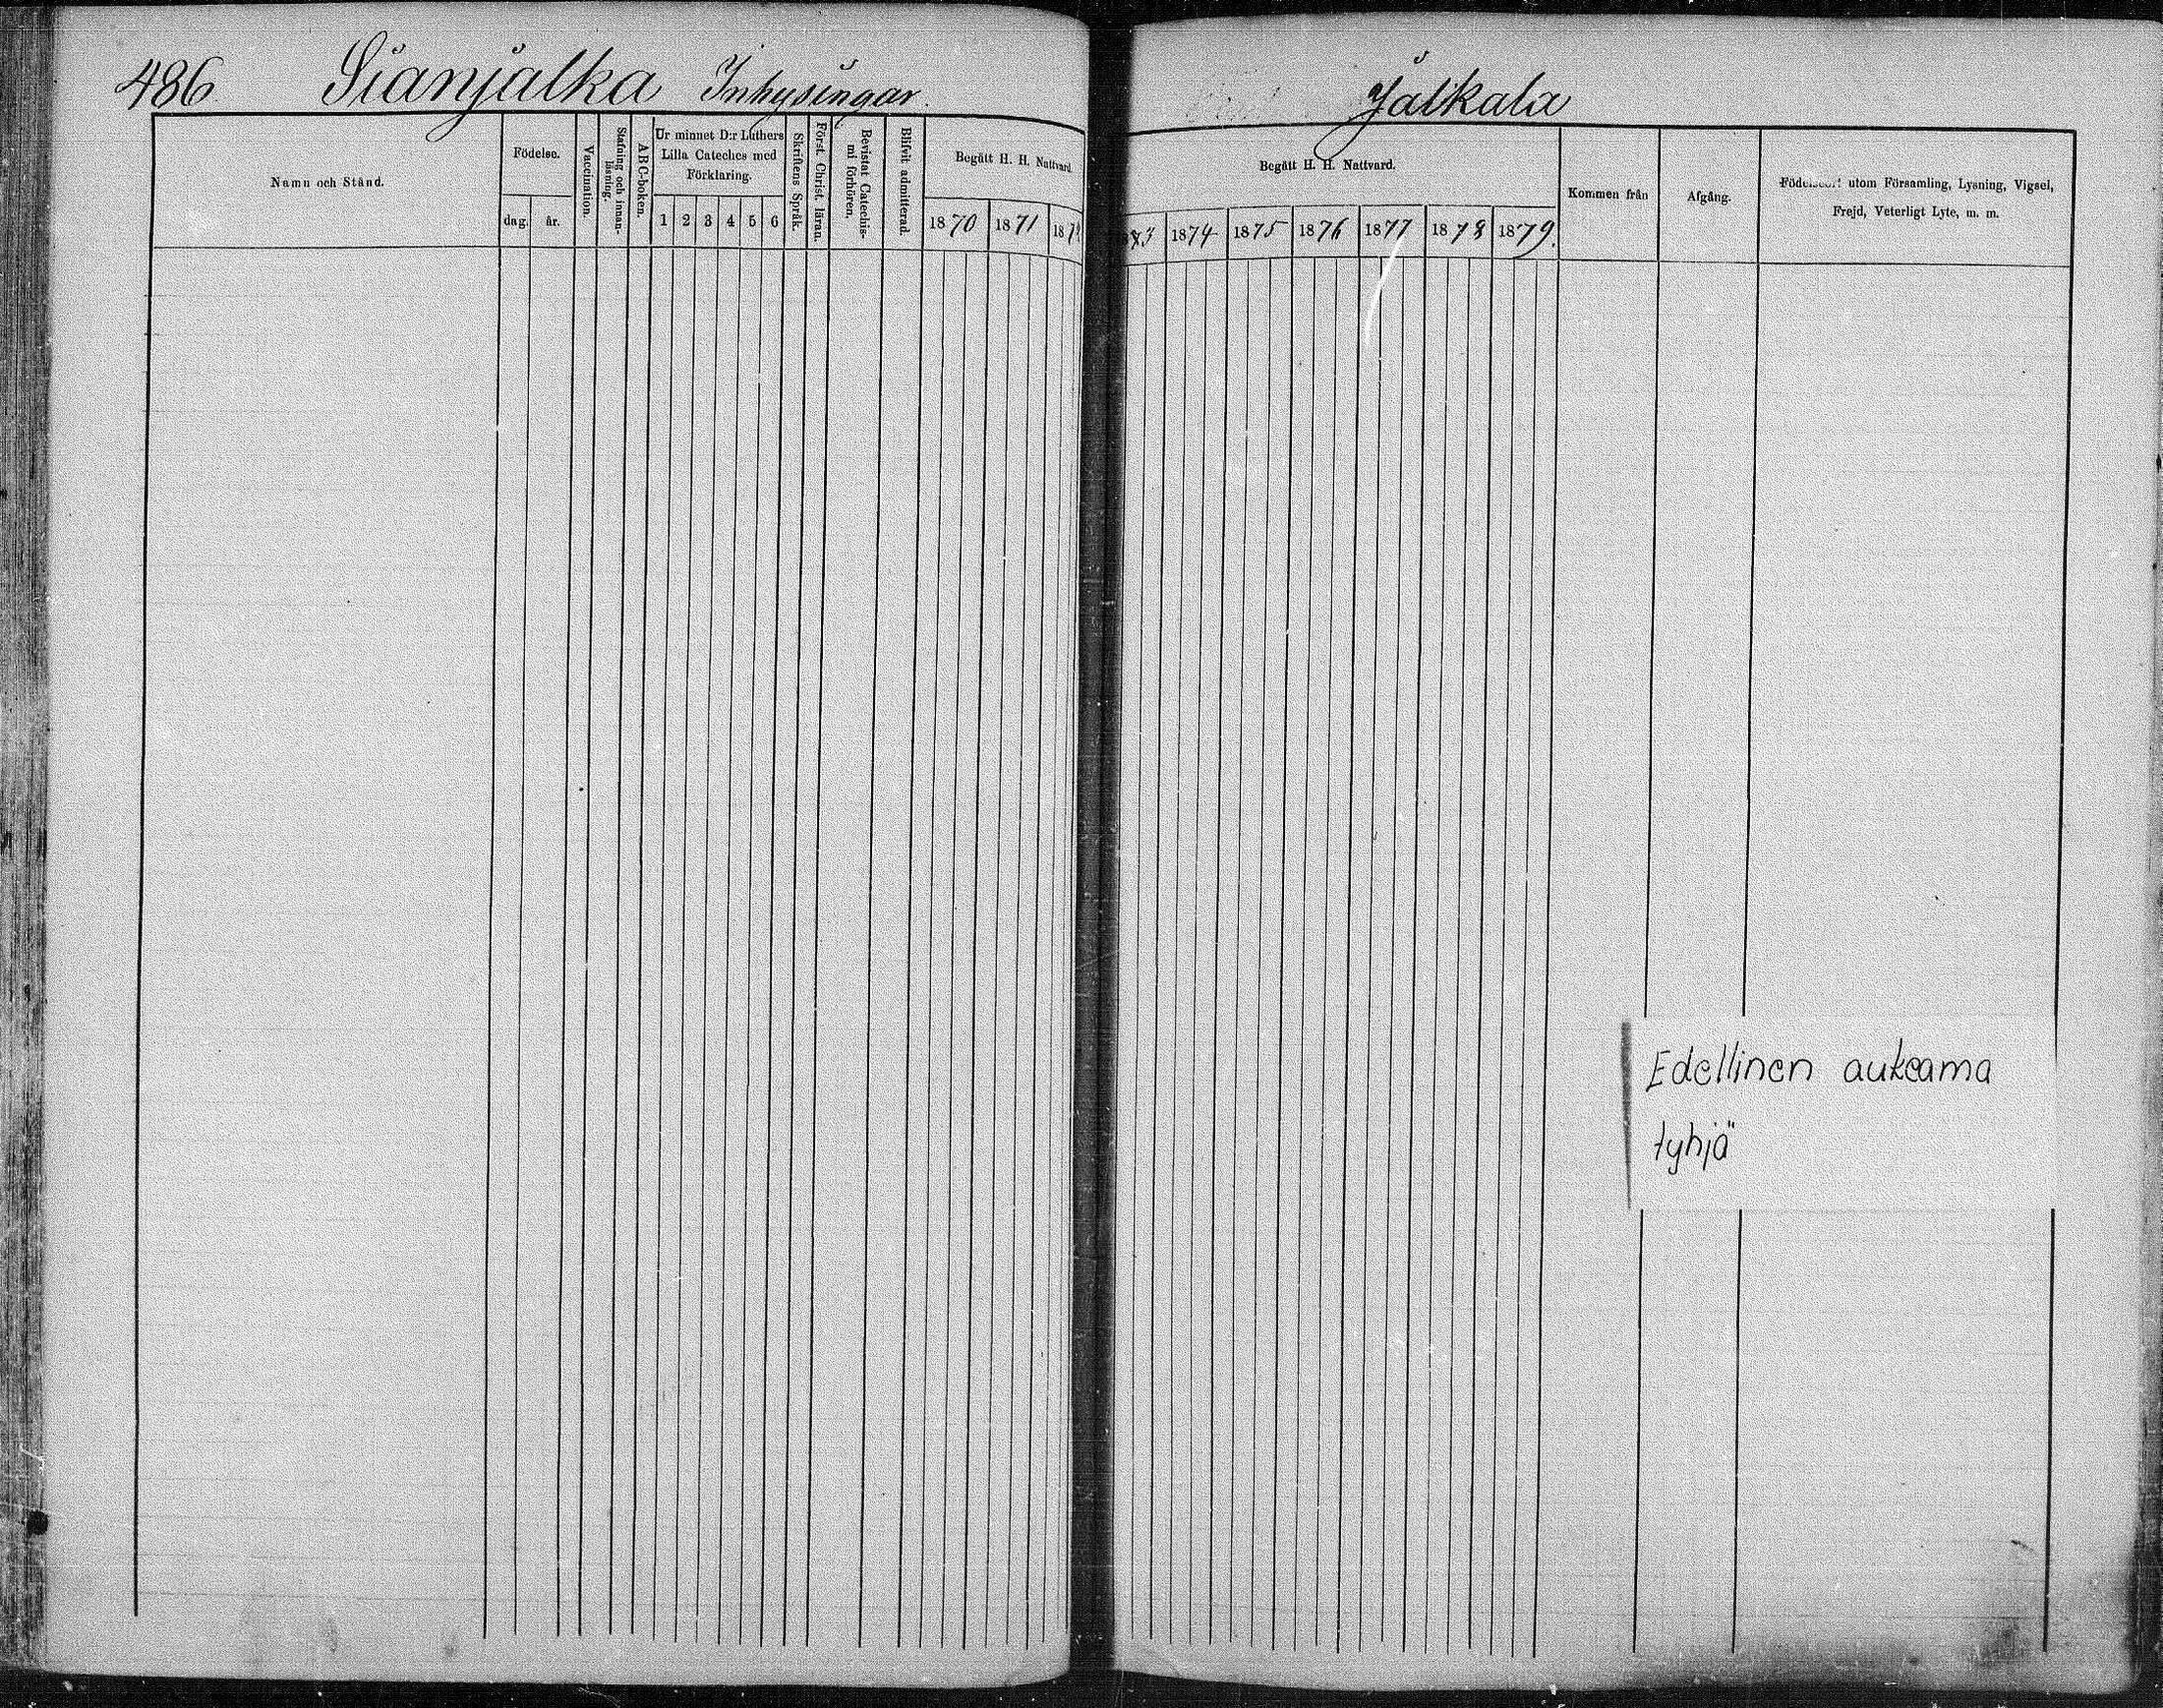 486 Sianjalka Inhysingar. Jalkala
Namn och Stånd.
Födelse.
dag. år.
Vaccination.
Stafning och innan-
läsning.
ABC-boken.
Ur minnet D:r Luthers
Lilla Cateches med
Förklaring.
1 2 3 4 5 6
Skriftens Språk.
Först. Christ. läran.
Bevistat Catechis-
mi förhören.
Blifvit admitterad.
Begått H. H. Nattvard.
1870 1871 187
Begått H. H. Nattvard.
73 1874 1875 1876 1877 1878 1879.
Kommen från
Afgång.
Födelseort utom Församling, Lysning, Vigsel,
Frejd, Veterligt Lyte, m. m.
Edellinen aukeama
tyhjä